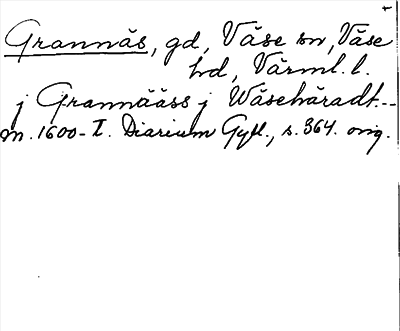 Grannäs, gd, Väse sn, Väse
hd, Värml. l.
j Grannääss j Wäsehäradt...
m. 1600-t. Diarium Gyll., s. 364. orig.